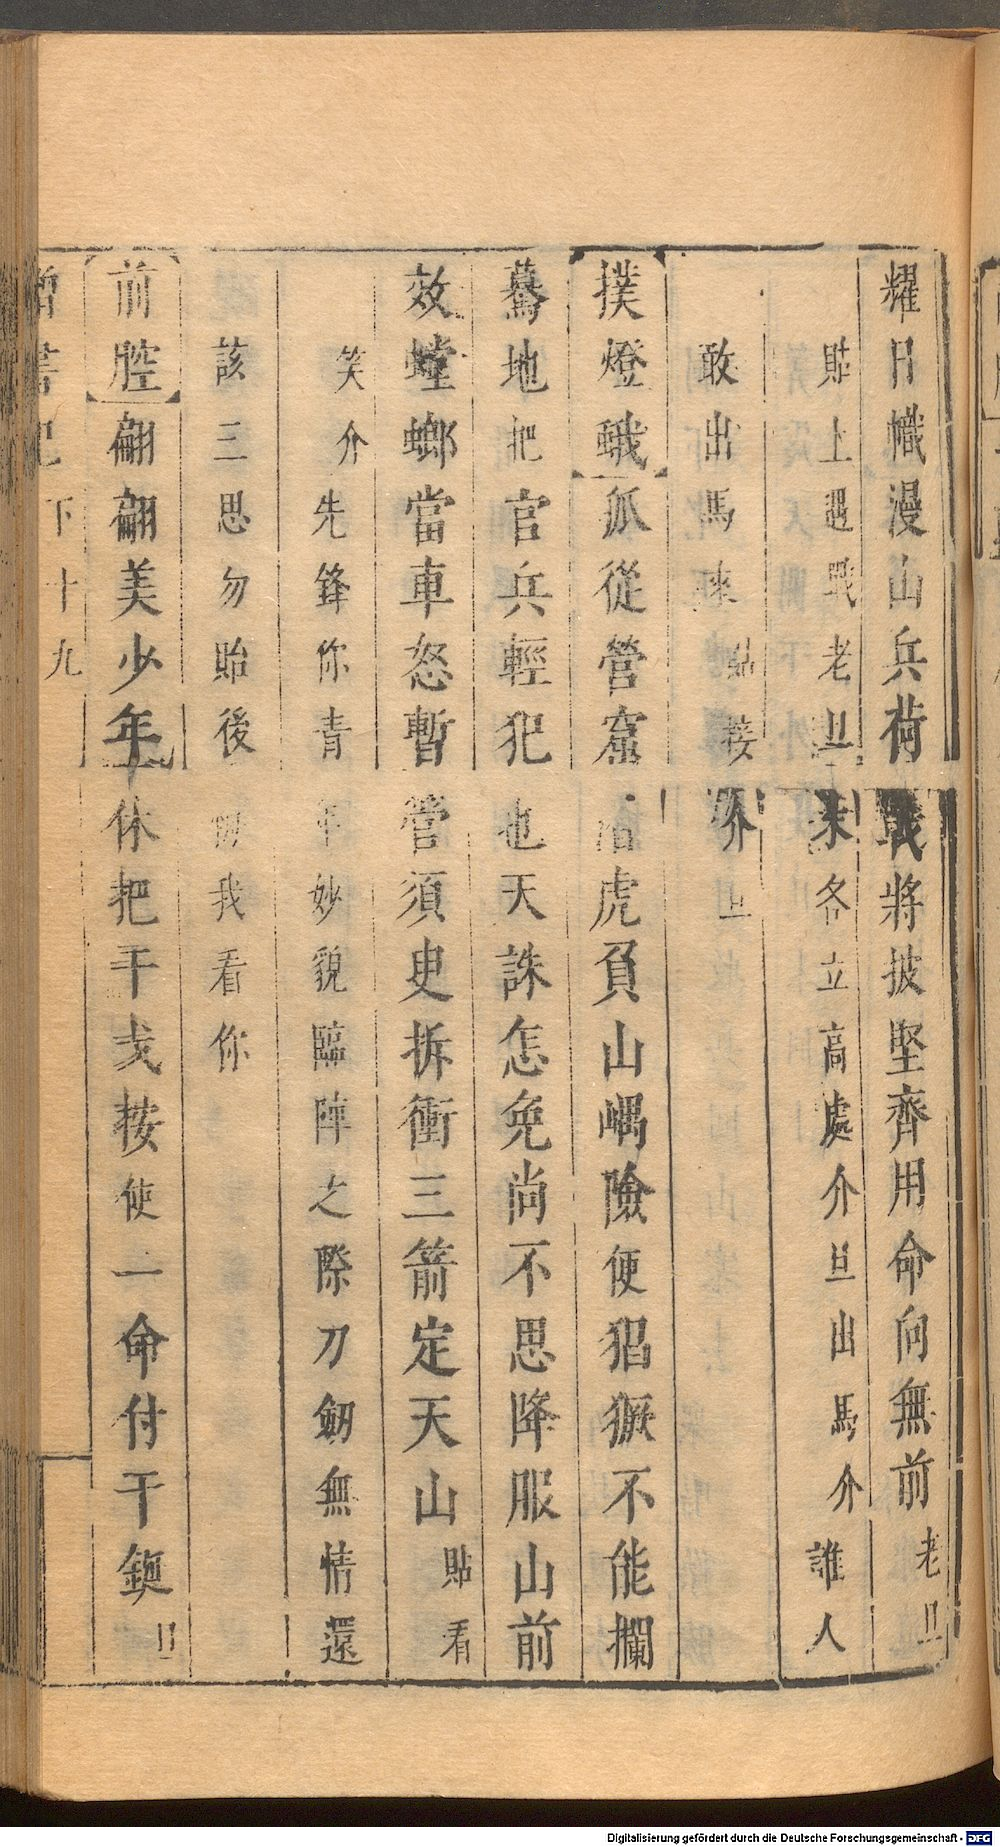 耀日幟漫山兵荷戟將披堅齊用命向無前老旦
貼上遇戰老旦末各立高處介旦出馬介誰人
敢出馬來貼接介旦
撲燈蛾孤從營窟冶虎負山嵎險便猖獗不能攔
驀地把官兵輕犯也天誅怎免尚不思降服山前
效螳螂當車怒暫管須臾拆衝三箭定天山貼看
笑介先鋒你青年妙貌臨陣之際刀劒無情還
該三思勿貽後我看你
前腔翩翩美少年休把干戈按使一命付干鏌旦
書記下十九
Digitalisierung gefördert durch die Deutsche Forschungsgemeinschaft - DFG